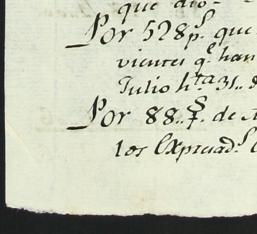 que dio
Por 528 p.s que
vientes q.e han
Julio h.ta 31..
Por 88.. p.s de
los Expresad.s